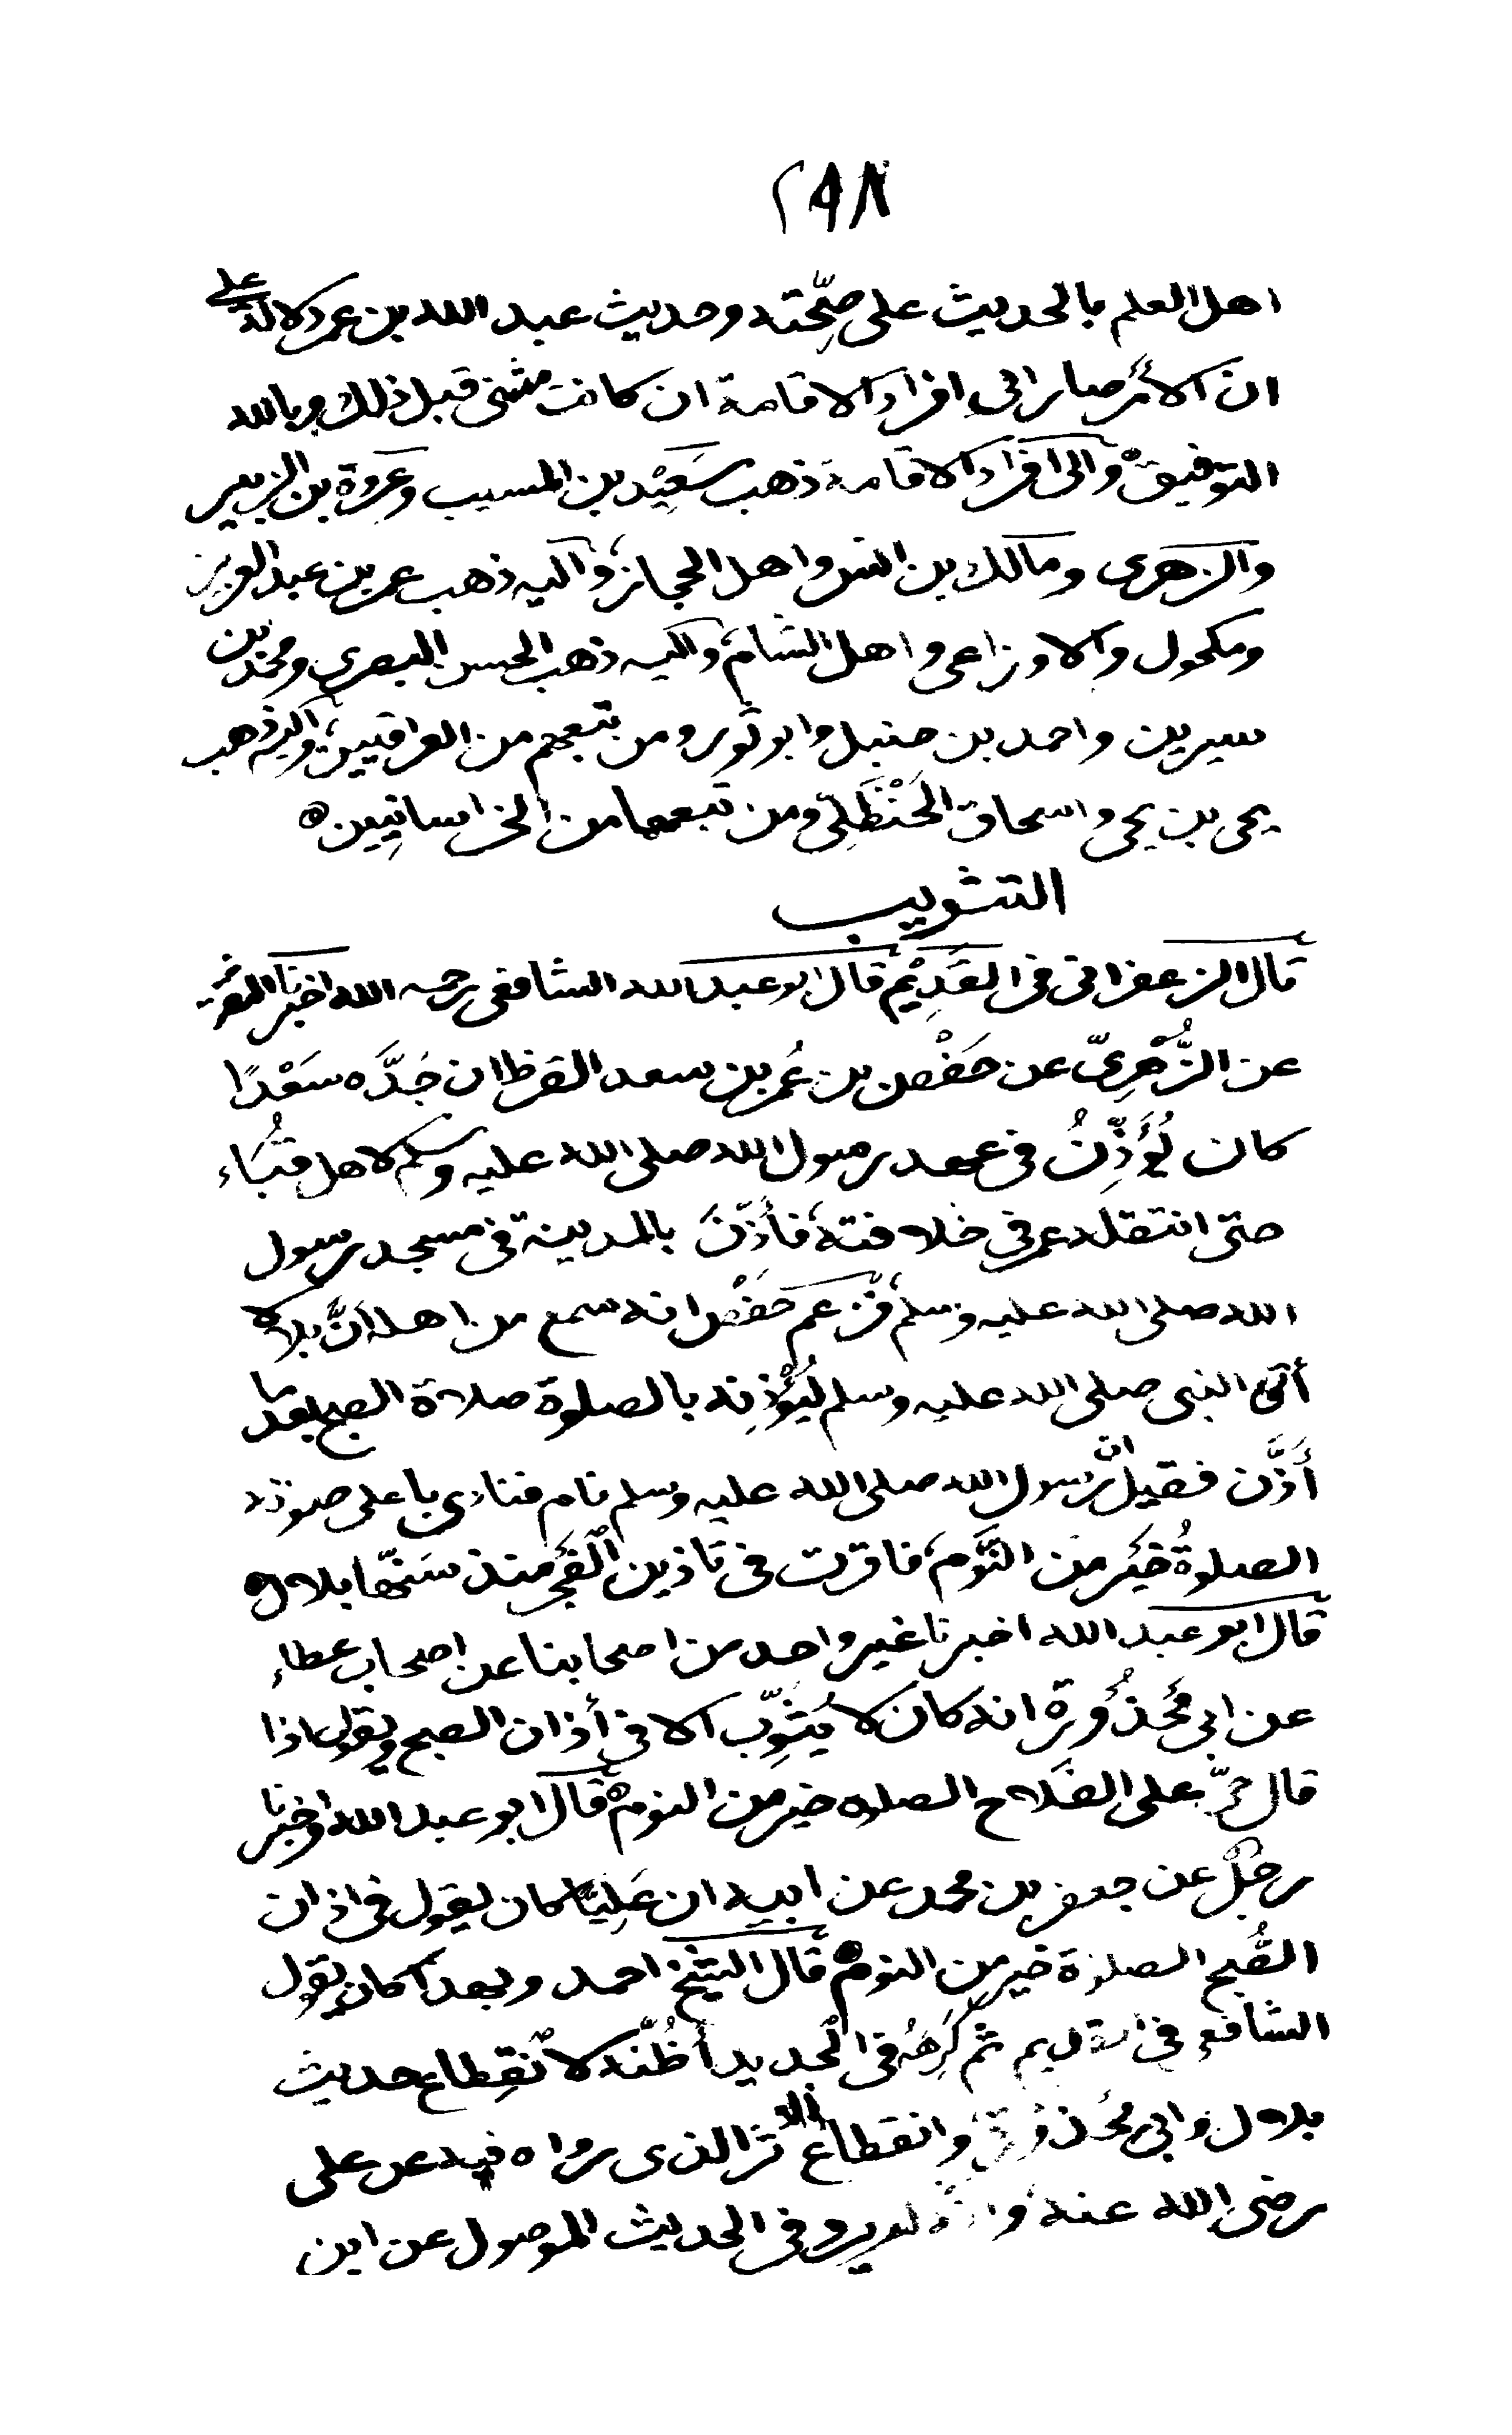 ٢٩٨
اهل العلم بالحديث على صِحّته وحديث عبد الله بن عمر دلالة على
ان الأمر صار الى افراد الاقامة ان كانت مثنى قبل ذلك وبالله
التوفيق والى افراد الاقامة ذهب سَعِيْد بن المسيب وعروة بن الزبير
والزهرى ومالك بن انس واهل الحجاز واليه ذهب عمر بن عبد العزيز
ومكحول والاوزاعى واهل الشام واليه ذهب الحسن البصرى ومحمد بن
سيرين واحمد بن حنبل وابو ثور ومن تبعهم من العراقيين واليه ذهب
يحيى بن يحيى واسحاق الحَنْظَلِىّ ومن تبعهما من الخراسانِيين ه
التثويب
قال الزعفرانى فى القَدِيْمِ قال ابو عبد الله الشافعى رحمه الله اخبرنا
عن الزُّهْرِىّ عن حَفْص بن عُمر بن سعد القرظ ان جَدَّه سَعْدًا
كان يُؤَذِّنُ فى عهد رسول الله صلى الله عليه وسلم لاهل قُبَاء
حتى انتقله عمر فى خلافته فأذّنَ بالمدينة فى مسجد رسول
الله صلى الله عليه وسلم فزعم حَفْص انه سمع من اهله أنَّ بلالا
أتى النبى صلى الله عليه وسلم لِيُؤْذِنه بالصلوة صلاة الصبح بعد ما
أَذَّن فقيل ان رسول الله صلى الله عليه وسلم نام فنادى باعلى صوته
الصلوةُ خَيْر من النَّوم فاقرت فى تاذين الْفَجْر منذ سَنّها بلال ه
قال ابو عبد الله اخبرنا غير واحد من اصحابنا عن اصحاب عطاء
عن ابى مَحْذُوْرة انه كان لا يُثَوِّب الا فى أذان الصبح ويقول اذا
قال حَىّ على الفَلَاح الصلوه خير من النوم ه قال ابو عبد الله واخبرنا
رجُل عن جعفر بن محمد عن ابيه ان عَلِيًّا كان يقول فى اذان
الصُّبح الصلوة خير من النوم ه قال الشيخ احمد وبهذا كان يقول
الشافعى فى القديم ثم كَرِهَهُ فى الْجديد أظُنُّه لانْقِطاع حديث
بلال وابى مَحْذُورة وانقطاع الاثر الذى رواه فيه عن على
رضى الله عنه وانه لم يرو فى الحديث الموصول عن ابن